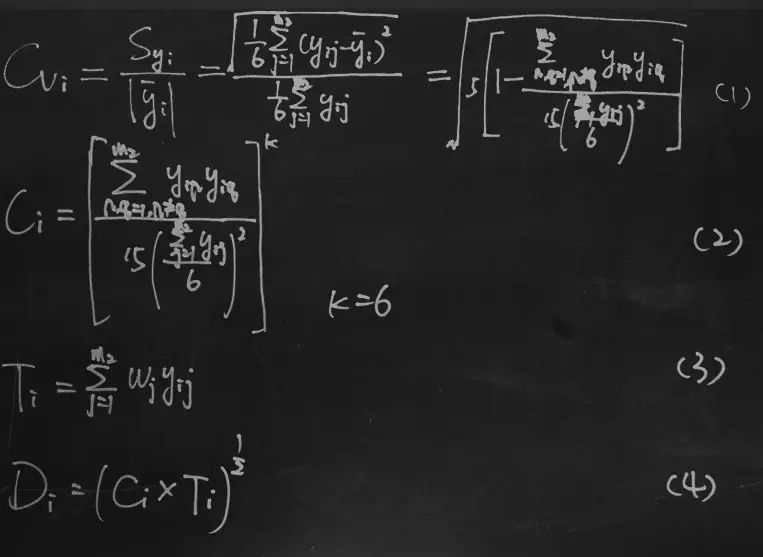 C_{v_i} = \frac{S_{y_i}}{|\bar{y}_i|} = \frac{\sqrt{\frac{1}{6}\sum_{j=1}^{m_2}(y_{ij}-\bar{y}_i)^2}}{\frac{1}{6}\sum_{j=1}^{m_2} y_{ij}} = \sqrt{5\left[1-\frac{\sum_{p,q=1,p≠q}^{m_2} y_{ip}y_{iq}}{15\left(\frac{\sum_{j=1}^{m_2} y_{ij}}{6}\right)^2}\right]} (1)
C_i = \left[\frac{\sum_{p,q=1,p≠q}^{m_2} y_{ip}y_{iq}}{15\left(\frac{\sum_{j=1}^{m_2} y_{ij}}{6}\right)^2}\right]^k (2)
k=6
T_i = \sum_{j=1}^{m_2} w_j y_{ij} (3)
D_i = (C_i × T_i)^{\frac{1}{2}} (4)